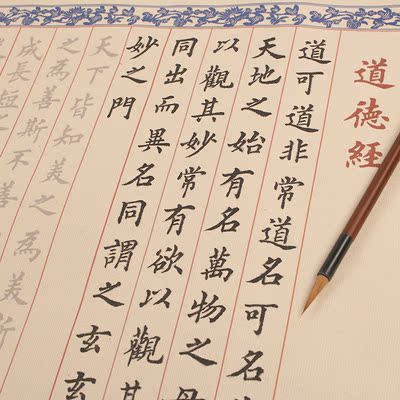 道德經
道可道非常道名可名
天地之始有名萬物之母
以觀其妙常有欲以觀其
同出而異名同謂之玄玄
妙之門
天下皆知美之為美斯
之為善斯不善
成長短